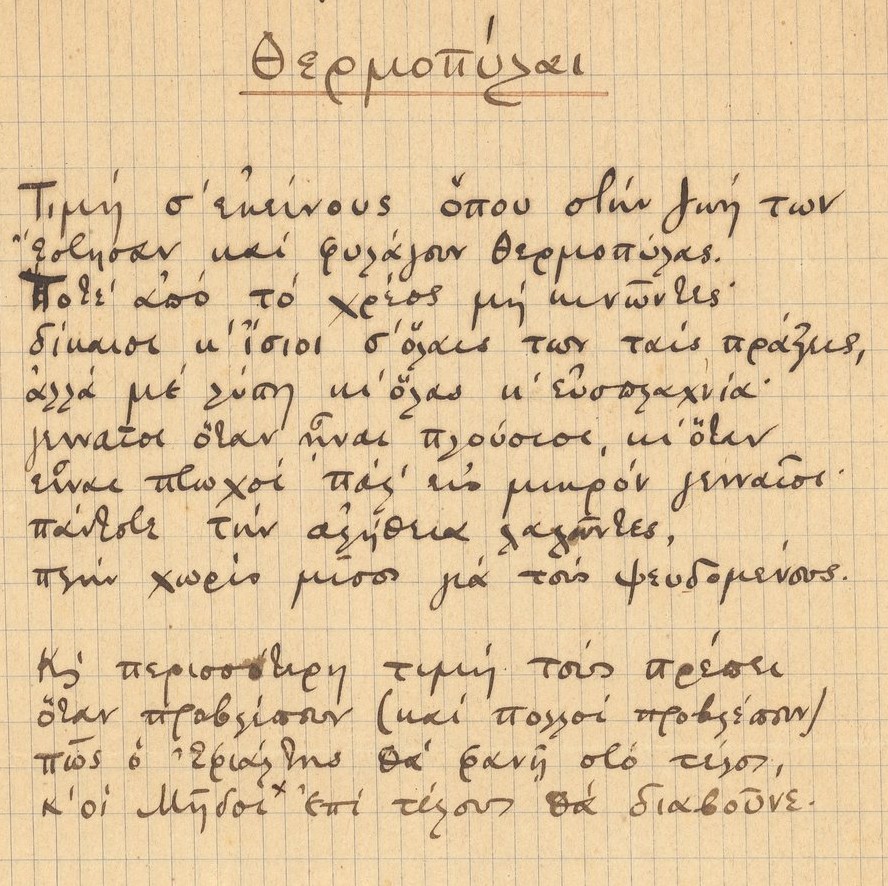 Θερμοπύλαι
Τιμή σ' εκείνους ὅπου στήν ζωή των
ἔστησαν καί φυλάγουν Θερμοπύλας.
Ποτέ ἀπό τό χρέος μή κινοῦντες·
δίκαιοι κ' ἴσιοι σ' ὅλαις των ταίς πράξεις,
ἀλλά μέ λύπη κι' ὅλας κ' εὐσπλαχνία·
γενναῖοι ὅταν ἦναι πλούσιοι, κι' ὅταν
εἶναι πτωχοί πάλ' εἰς μικρόν γενναῖοι·
πάντοτε τήν αλήθεια λαλοῦντες,
πλήν χωρίς μῖσος γιά τούς ψευδομένους.
Κι περισσότερη τιμή τούς πρέπει
ὅταν προβλέπουν (καί πολλοί προβλέπουν)
πῶς ὁ Ἐφιάλτης θά φανῇ στό τέλος,
κ' οἱ Μῆδοι × ἐπί τέλους θά διαβοῦνε.